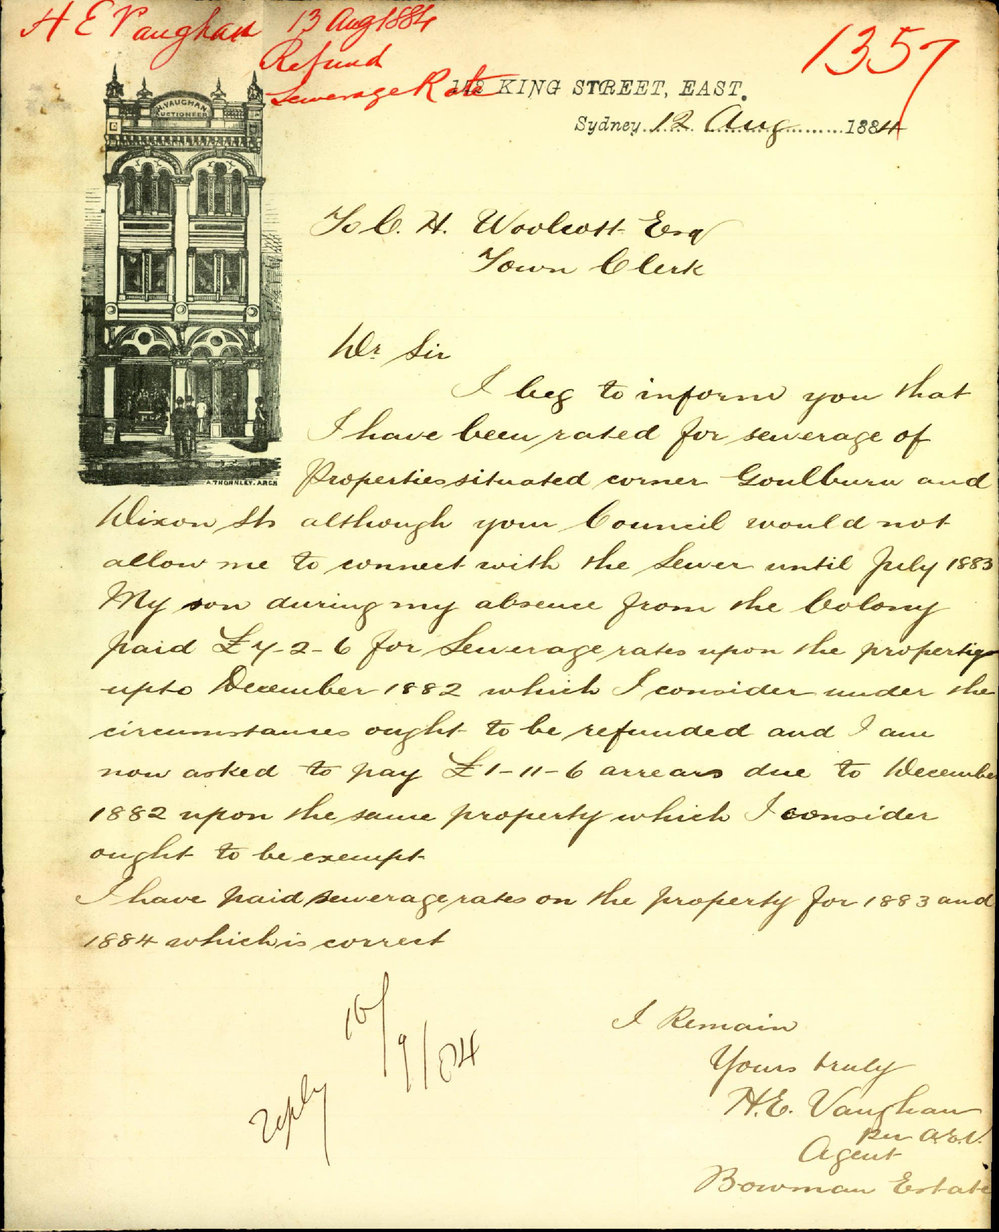 H E Vaughan 13 Aug 1884
Refund
Sewerage Rate
1357
KING STREET, EAST.
Sydney 12 Aug 1884
H. VAUGHAN
AUCTIONEER
A. THORNLEY. ARCH
To C. H. Woolcott Esq
Town Clerk
Dr Sir
I beg to inform you that
I have been rated for sewerage of
Properties situated corner Goulburn and
Dixon Sts although your Council would not
allow me to connect with the Sewer until July 1883
My son during my absence from the Colony
paid £4-2-6 for Sewerage rates upon the property
upto December 1882 which I consider under the
circumstances ought to be refunded and I am
now asked to pay £1-11-6 arrears due to December
1882 upon the same property which I consider
ought to be exempt
I have paid sewerage rates on the property for 1883 and
1884 which is correct
reply 16/9/84
I Remain
Yours truly
H. E. Vaughan
per A.E.V.
Agent
Bowman Estate